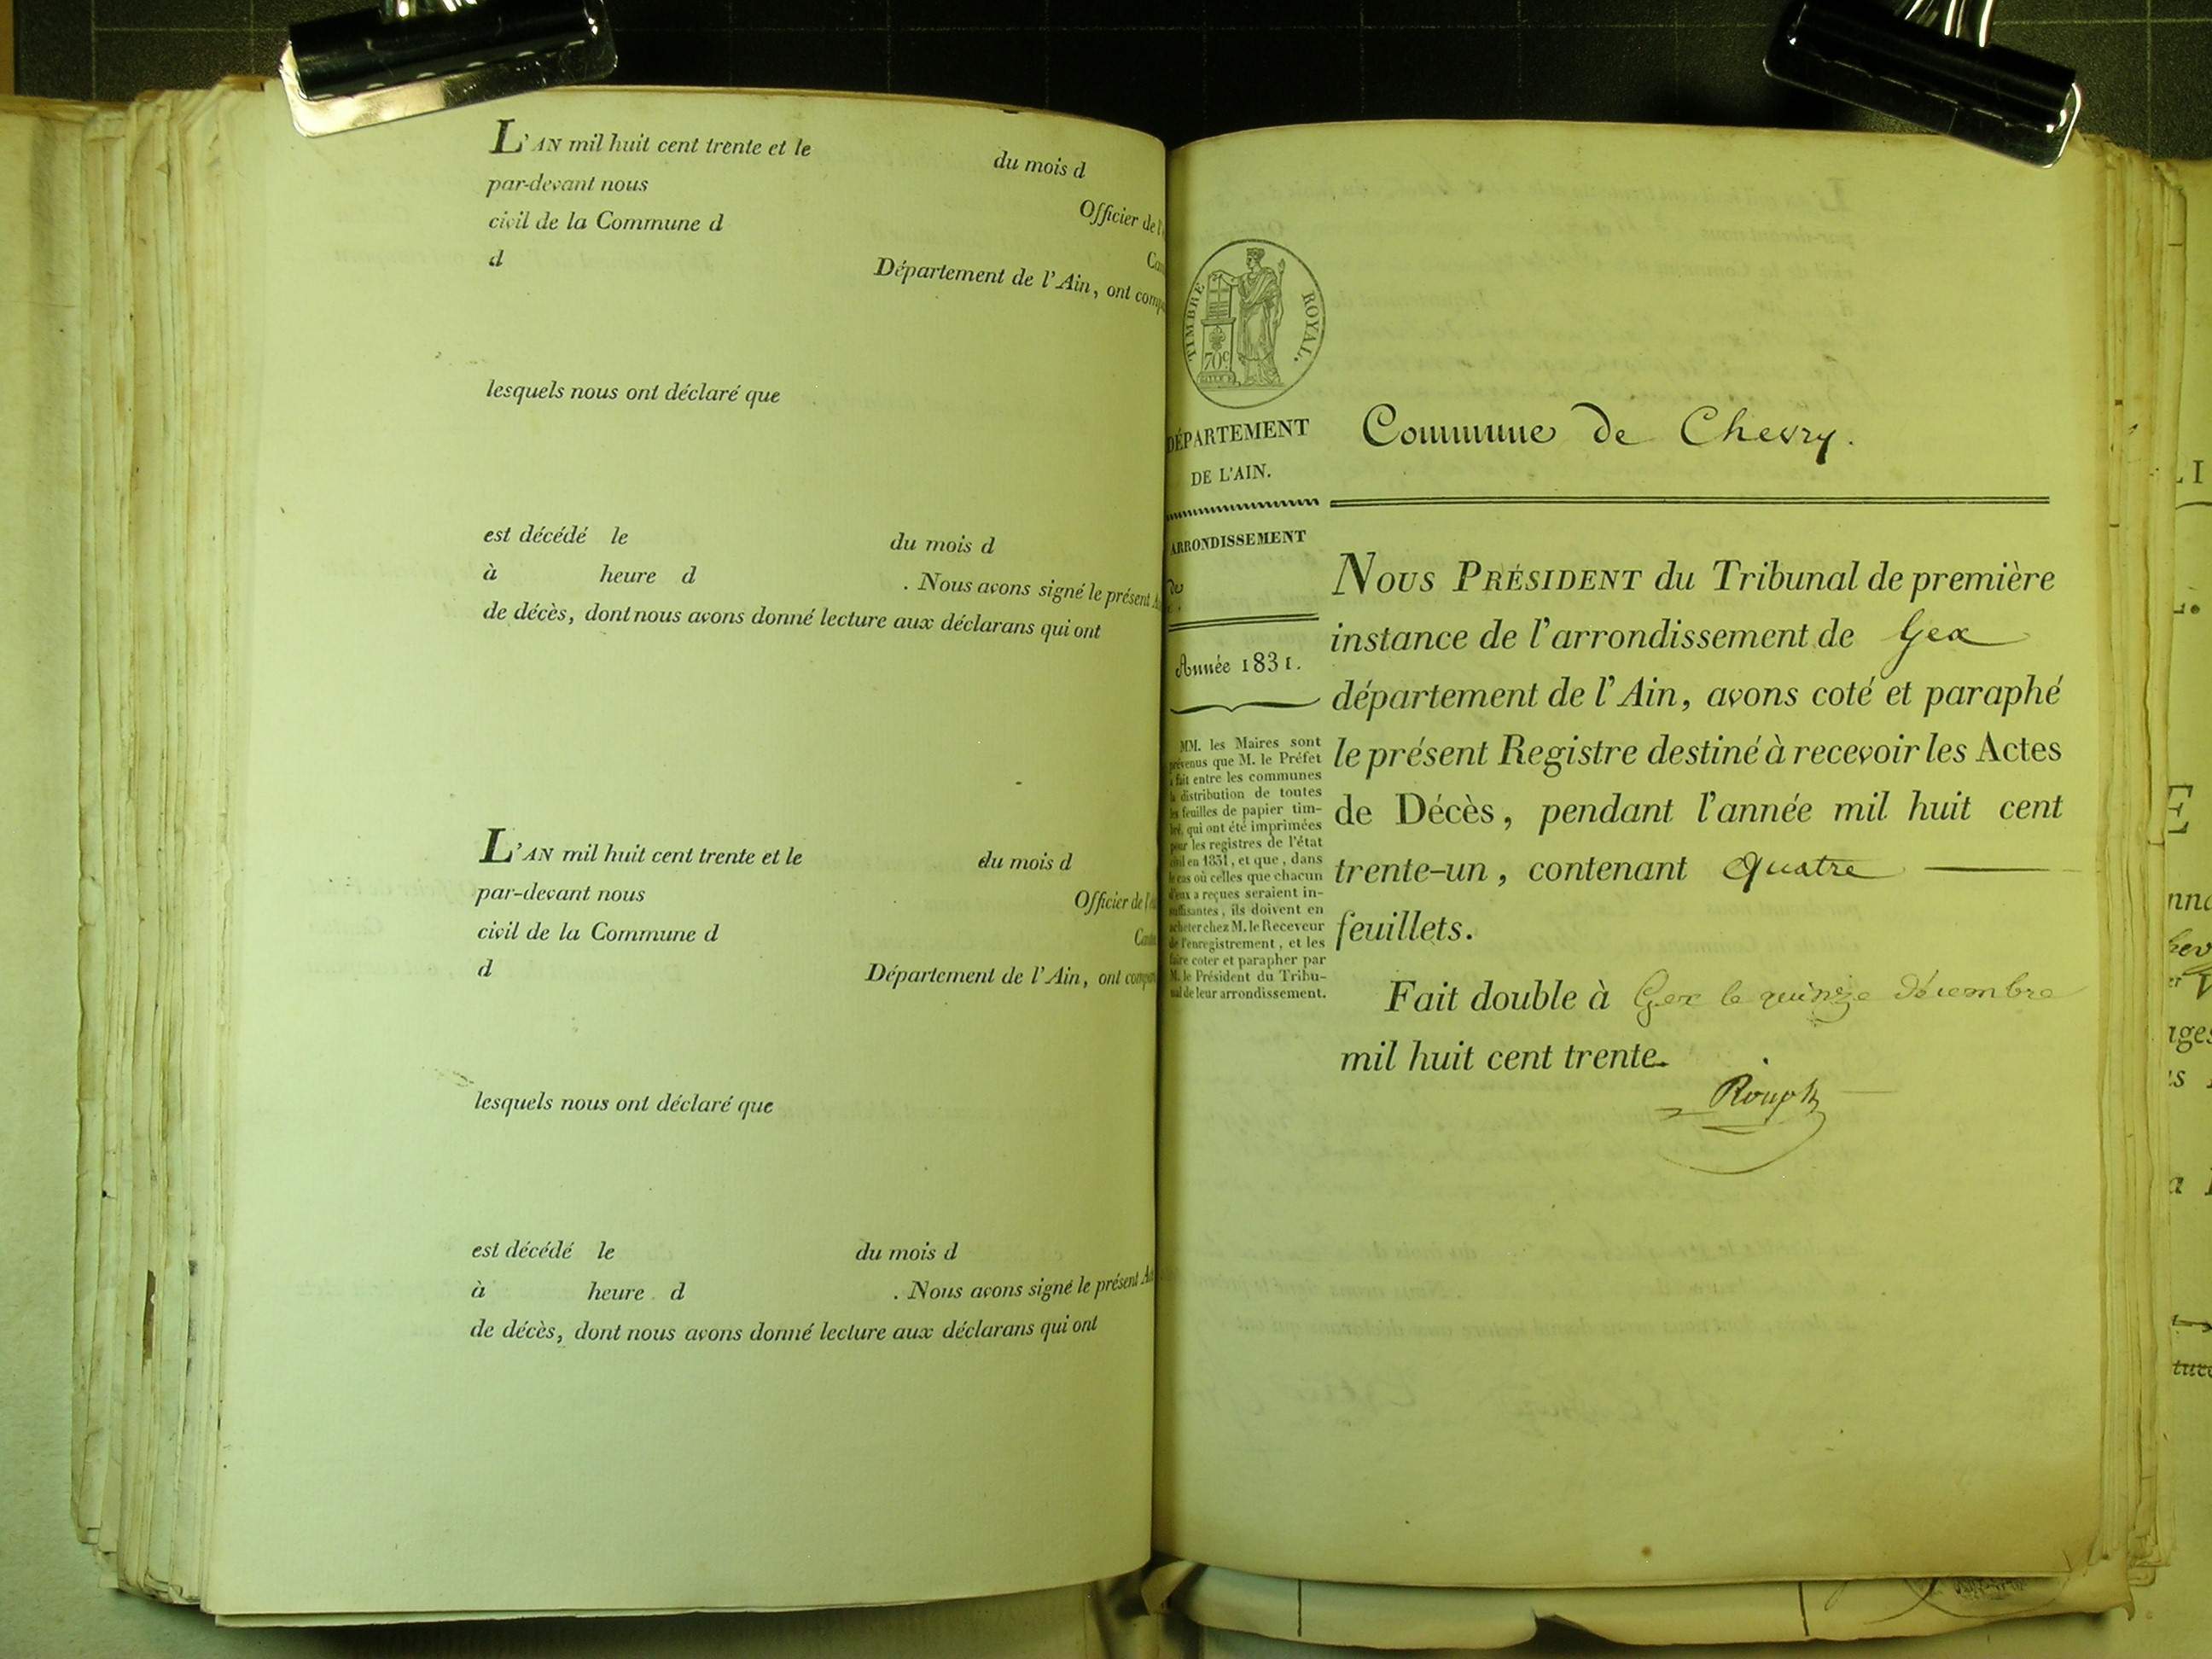 L'AN mil huit cent trente et le du mois d
par-devant nous Officier de l'
civil de la Commune d
d Département de l'Ain, ont comp
lesquels nous ont déclaré que
est décédé le du mois d
à heure d . Nous avons signé le présent A
de décès, dont nous avons donné lecture aux déclarans qui ont
L'AN mil huit cent trente et le du mois d
par-devant nous Officier de l'
civil de la Commune d
d Département de l'Ain, ont comp
lesquels nous ont déclaré que
est décédé le du mois d
à heure d . Nous avons signé le présent A
de décès, dont nous avons donné lecture aux déclarans qui ont
TIMBRE ROYAL.
70c
DÉPARTEMENT
DE L'AIN.
ARRONDISSEMENT
de
Année 1831.
MM. les Maires sont
prévenus que M. le Préfet
a fait entre les communes
la distribution de toutes
les feuilles de papier tim-
bré, qui ont été imprimées
pour les registres de l'état
civil en 1831, et que, dans
le cas où celles que chacun
d'eux a reçues seraient in-
suffisantes, ils doivent en
acheter chez M. le Receveur
de l'enregistrement, et les
faire coter et parapher par
M. le Président du Tribu-
nal de leur arrondissement.
Commune de Chevry.
NOUS PRÉSIDENT du Tribunal de première
instance de l'arrondissement de Gex
département de l'Ain, avons coté et paraphé
le présent Registre destiné à recevoir les Actes
de Décès, pendant l'année mil huit cent
trente-un, contenant quatre
feuillets.
Fait double à Gex le quinze décembre
mil huit cent trente.
Rouph